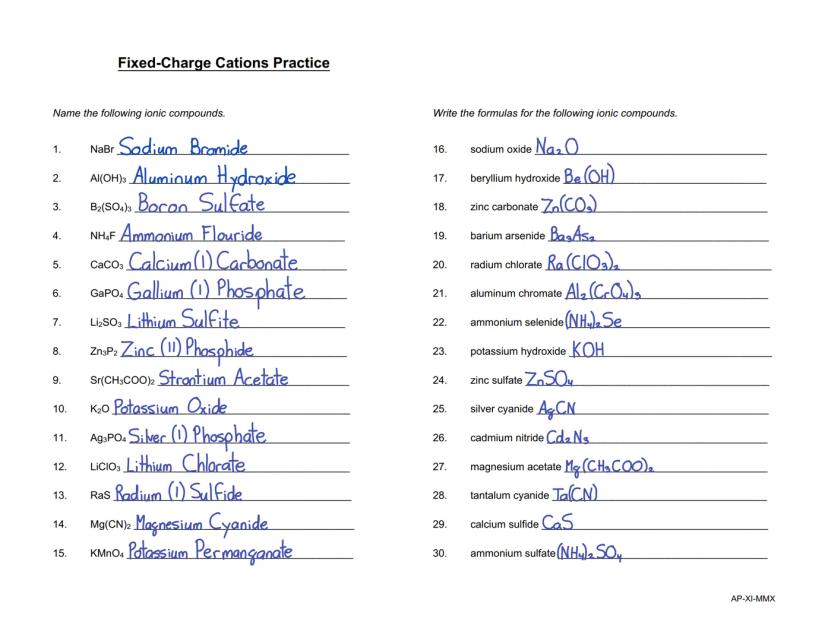 Fixed-Charge Cations Practice
Name the following ionic compounds.
1. NaBr Sodium Bromide
2. Al(OH)₃ Aluminum Hydroxide
3. B₂(SO₄)₃ Boron Sulfate
4. NH₄F Ammonium Flouride
5. CaCO₃ Calcium(I) Carbonate
6. GaPO₄ Gallium (I) Phosphate
7. Li₂SO₃ Lithium Sulfite
8. Zn₃P₂ Zinc (II) Phosphide
9. Sr(CH₃COO)₂ Strontium Acetate
10. K₂O Potassium Oxide
11. Ag₃PO₄ Silver (I) Phosphate
12. LiClO₃ Lithium Chlorate
13. RaS Radium (I) Sulfide
14. Mg(CN)₂ Magnesium Cyanide
15. KMnO₄ Potassium Permanganate
Write the formulas for the following ionic compounds.
16. sodium oxide Na₂O
17. beryllium hydroxide Be(OH)
18. zinc carbonate Zn(CO₃)
19. barium arsenide Ba₃As₂
20. radium chlorate Ra(ClO₃)₂
21. aluminum chromate Al₂(CrO₄)₃
22. ammonium selenide (NH₄)₂Se
23. potassium hydroxide KOH
24. zinc sulfate ZnSO₄
25. silver cyanide AgCN
26. cadmium nitride Cd₂N₃
27. magnesium acetate Mg(CH₃COO)₂
28. tantalum cyanide Ta(CN)
29. calcium sulfide CaS
30. ammonium sulfate (NH₄)₂SO₄
AP-XI-MMX